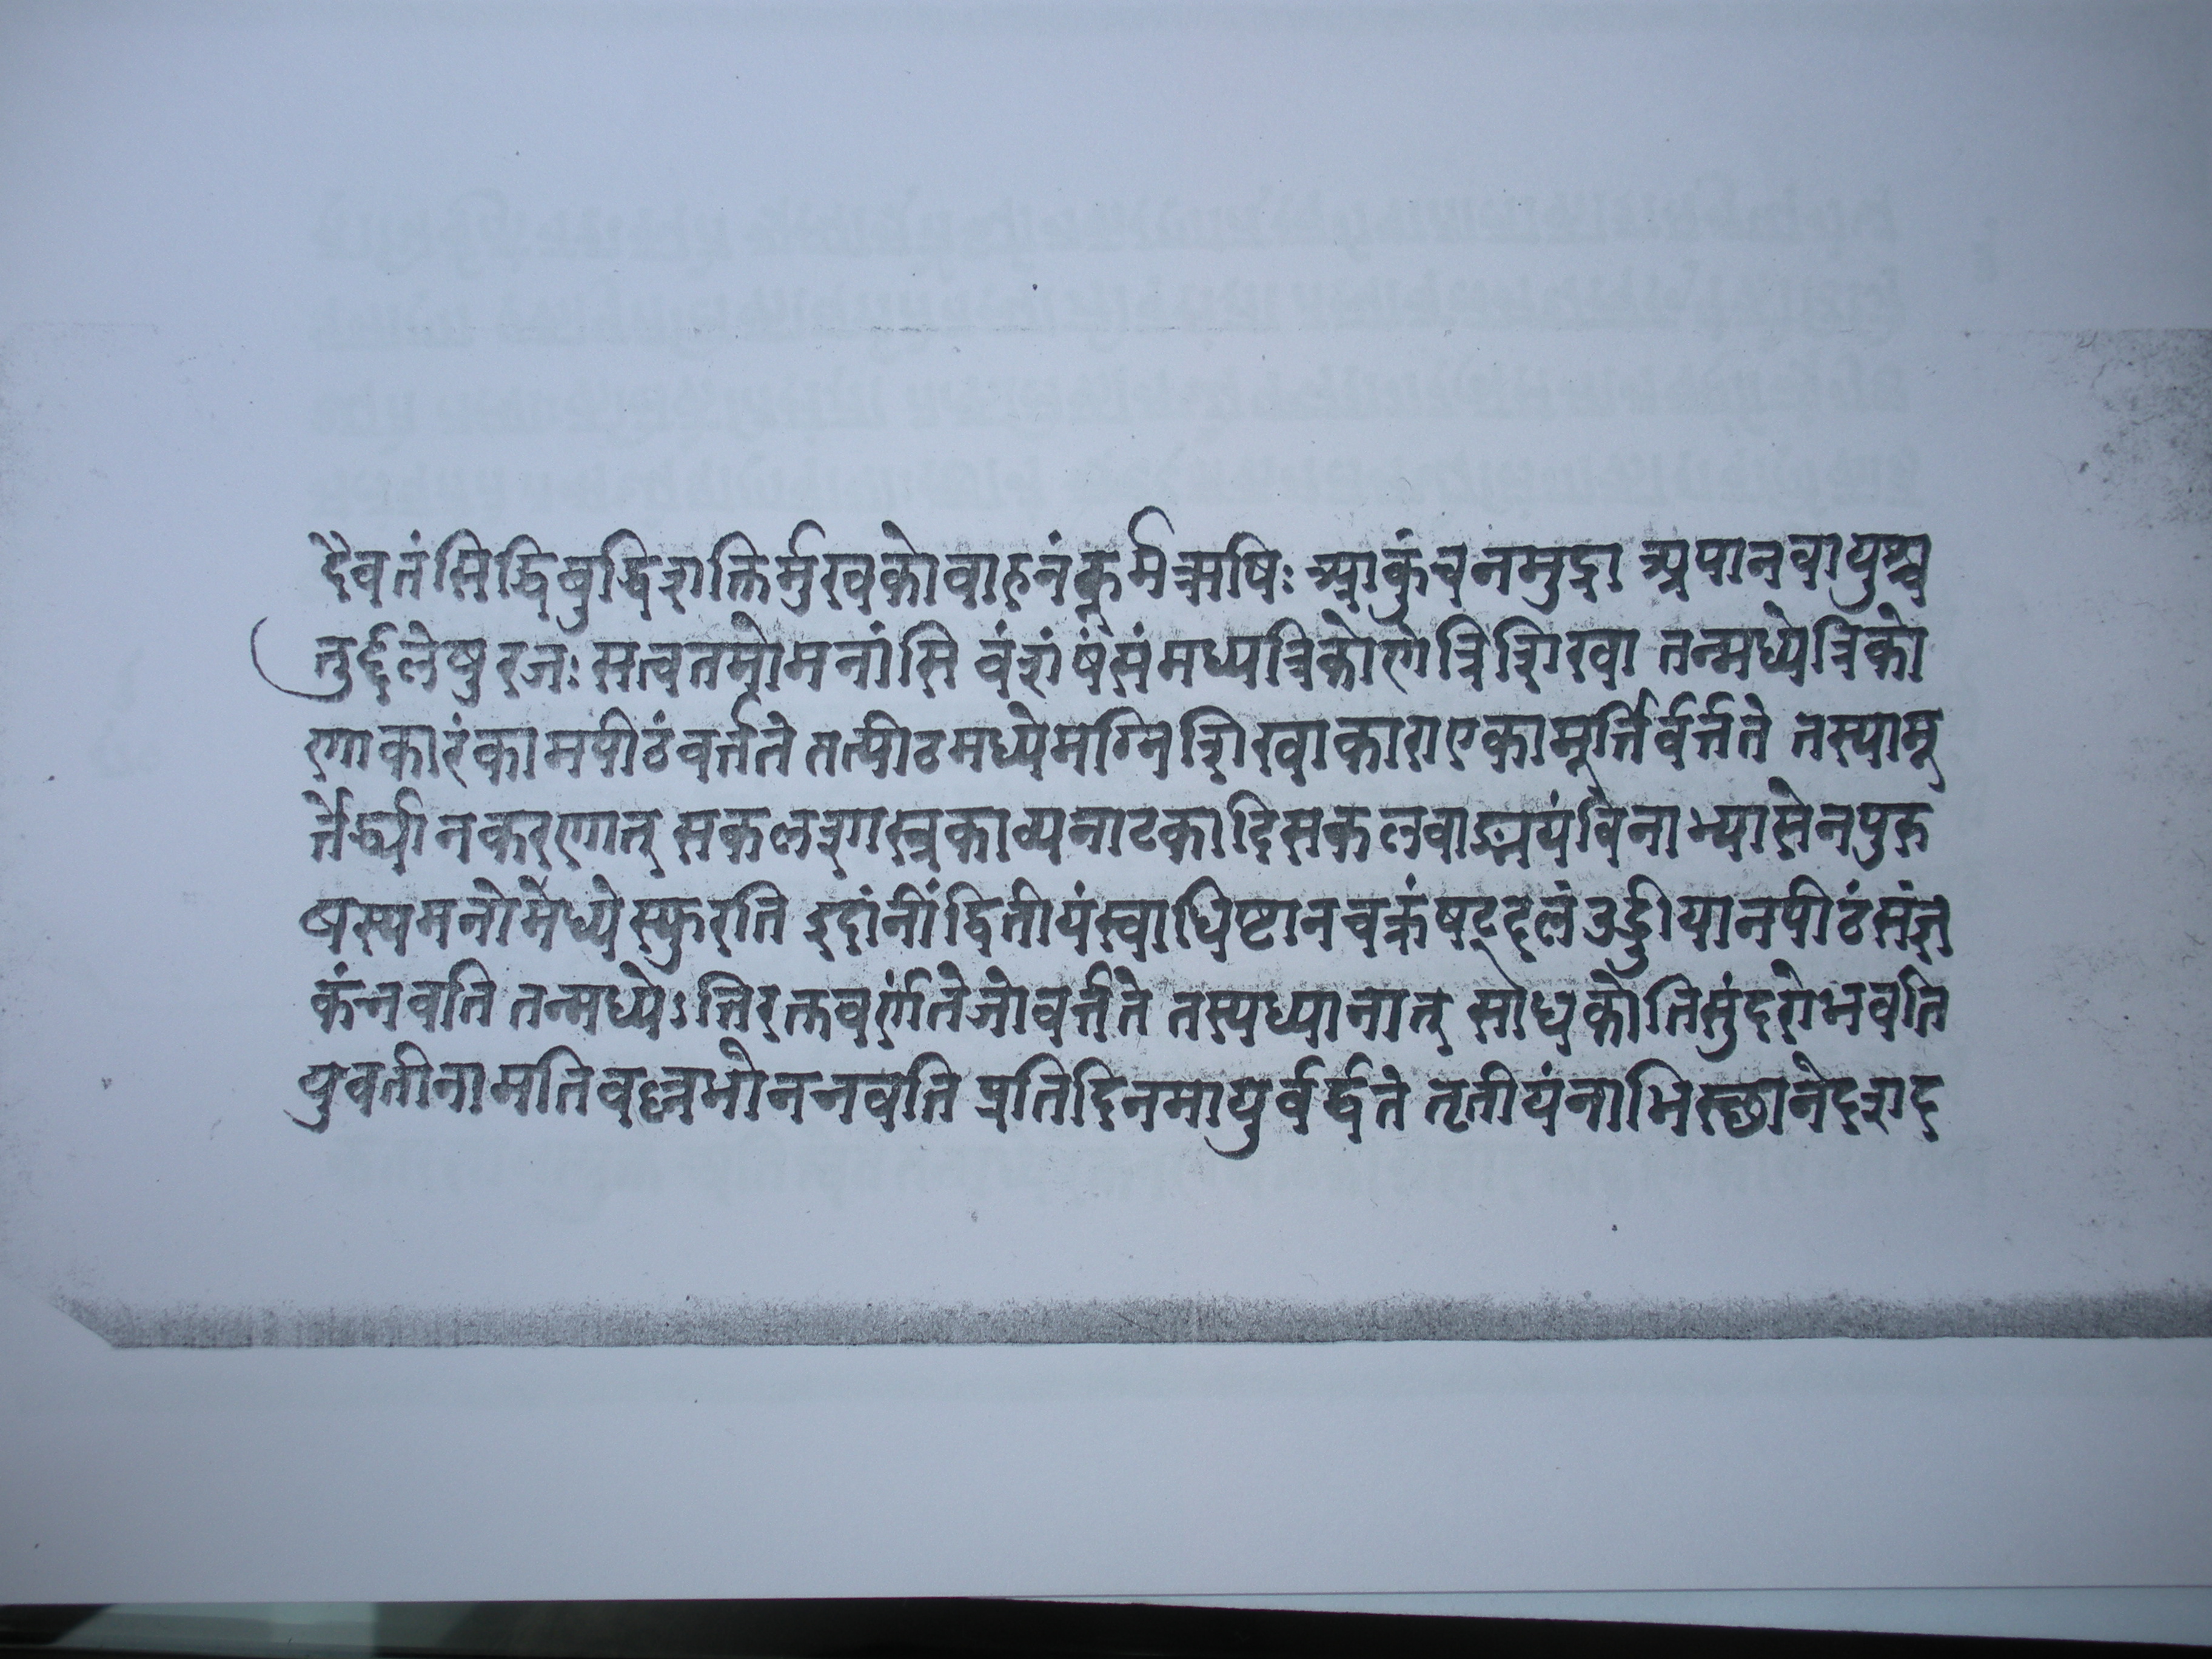 दैवतं सिद्धिबुद्धिशक्तिर्मुखको वाहनं कूर्मऋषिः आकुंचनमुद्रा अपानवायुश्च
तुर्द्दलेषु रजः सत्वतमोमनांसि वं शं षं सं मध्यत्रिकोणे त्रिशिखा तन्मध्ये त्रिको
णाकारं कामपीठं वर्त्तते तत्पीठमध्ये मग्निशिखाकारा एका मूर्त्तिर्वर्त्तते तस्या मू
र्त्तेर्ध्यानकरणात् सकलशास्त्रकाव्यनाटकादिसकलवाङ्मयं विनाभ्यासेन पुरु
षस्य मनोमध्ये स्फुरति इदांनीं द्वितीयं स्वाधिष्टानचक्रं षट्दलं उड्डीयानपीठं संज्ञ
कं नवति तन्मध्येऽत्तिरक्तवर्णं तेजो वर्त्तते तस्य ध्यानात् साधकोतिसुंदरो भवति
युवतीनामतिवल्लभो ननवति प्रतिदिनमायुर्वर्द्धते तृतीयं नाभिस्छाने दशद